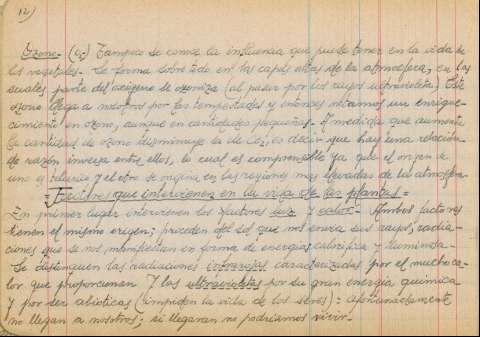 12)
Ozono.- (O3) Tampoco se conoce la influencia que puede tener en la vida de
los vegetales.- Se forma sobre todo en las capas altas de la atmósfera, en las
cuales parte del oxígeno se ozoniza (al pasar por los rayos ultravioleta) Este
ozono llega a nosotros por las tempestades y entonces notamos un enrique-
cimiento en ozono, aunque en cantidades pequeñas.- A medida que aumenta
la cantidad de ozono disminuye la de CO2, es decir que hay una relación
de razón inversa entre ellos, lo cual es comprensible ya que el origen de
uno es y el otro se origina en las regiones más elevadas de la atmósfera.
= Factores que intervienen en la vida de las plantas =
En primer lugar intervienen los factores luz y calor.- Ambos factores
tienen el mismo origen; proceden del sol que nos envía sus rayos, radia-
ciones que se nos manifiestan en forma de energías calorífica y luminosa.-
Se distinguen las radiaciones infrarrojas caracterizadas por el mucho ca-
lor que proporcionan. Y las ultravioletas por su gran energía química
y por ser abióticas (impiden la vida de los seres): afortunadamente
no llegan a nosotros; si llegaran no podríamos vivir.-